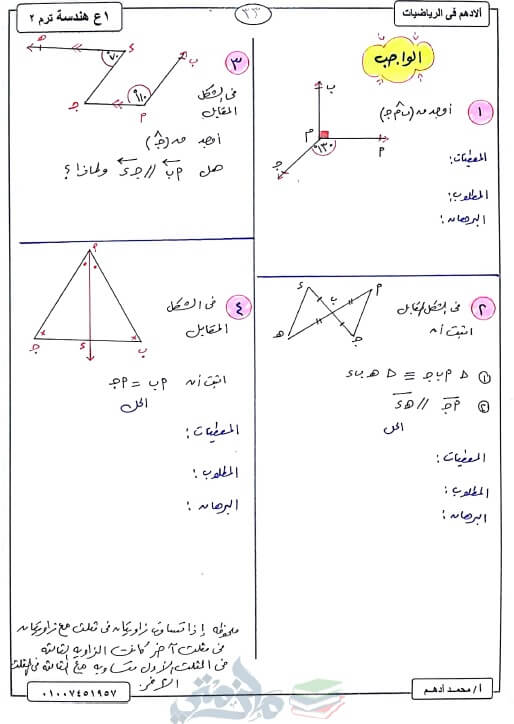 ألادهم فى الرياضيات
٣٣
١ع هندسة ترم ٢
الواجب
١ أوجد مہ (ب م ج)
ب
م
م
١٣٠°
ج
المعطيات :
المطلوب :
البرهان :
٢ فى الشكل المقابل
اثبت أن
s ب م
ھ ج
١ Δ م ب ج ≡ Δ ھ ب s
٢ م ج // ھ s
الحل
المعطيات :
المطلوب :
البرهان :
٣ فى الشكل
المقابل
ھ s ب
٧٠° ١١٠°
ج م
أوجد مہ (ج)
هل م ب // ج s ولماذا ؟
٤ فى الشكل
المقابل
م
ج s ب
اثبت أن م ب = م ج
الحل
المعطيات :
المطلوب :
البرهان :
ملحوظه إذا تساوت زاويتان فى مثلث مع زاويتان
فى مثلث آخر كانت الزاويه الثالثه
فى المثلث الأول متساويه مع الثالثه فى المثلث
الآخر.
ملزمتي
أ / محمد أدهم
٠١٠٠٧٤٥١٩٥٧